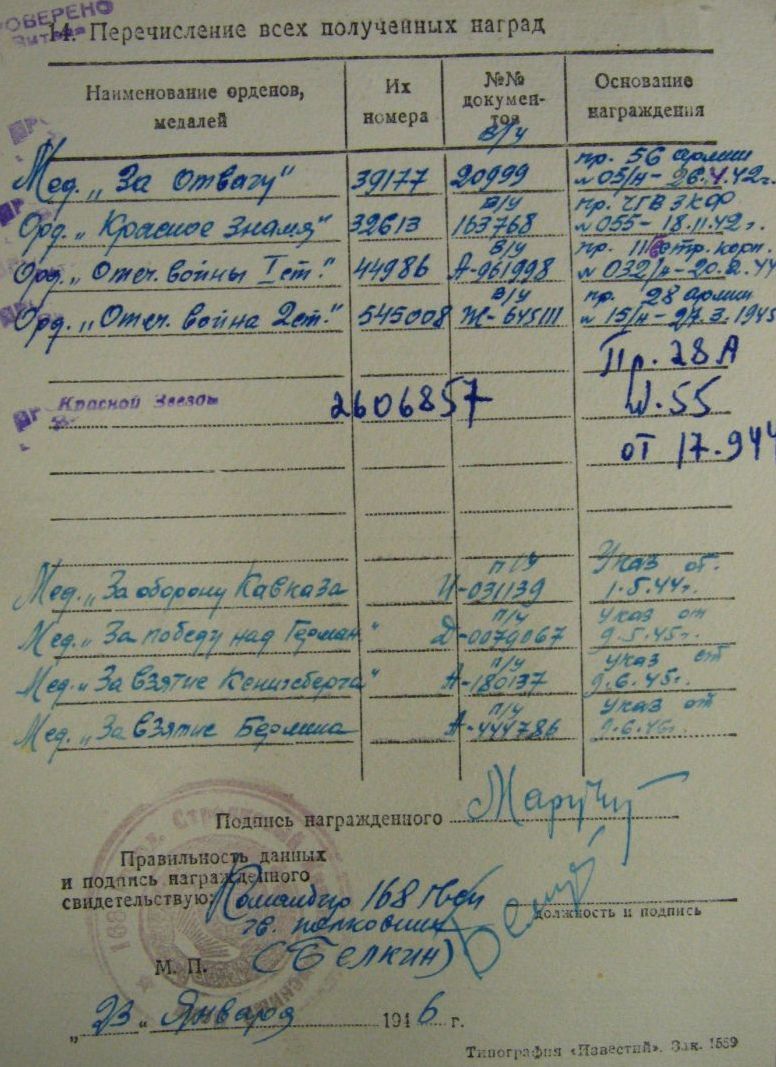 ПРОВЕРЕНО
14. Перечисление всех полученных наград
Наименование орденов, медалей
Их номера
№№ документов
Основание награждения
в/у
пр. 56 армии
Мед. „За отвагу" 39177 20999 №05/н - 26.4.42г.
в/у пр. ЧГВ ЗКФ
Орд. „Красное Знамя" 32613 163768 №055 - 18.11.42г.
в/у пр. 11 стр. корп.
Орд. „Отеч. войны I ст." 44986 А-961998 №032/н - 20.2.44
в/у пр. 28 армии
Орд. „Отеч. война 2 ст." 545008 Ж-645111 № 15/н - 27.3.1945
Пр. 28 А
Красной Звезды 2606857 №.55
от 17.944
п/у Указ от.
Мед. „За оборону Кавказа И-031139 1.5.44г.
п/у Указ от
Мед. „За победу над Герман" Д-0079067 9.5.45г.
п/у Указ от
Мед. „За взятие Кенигсберга" А-180137 9.6.45г.
п/у Указ от
Мед. „За взятие Берлина А-444786 9.6.45г.
Подпись награжденного
Правильность данных
и подпись награжденного
свидетельствую: Командир 168
гв. полковник
должность и подпись
М. П. (Белкин)
„23" Января 1946 г.
Типография «Известий». Зак. 1559